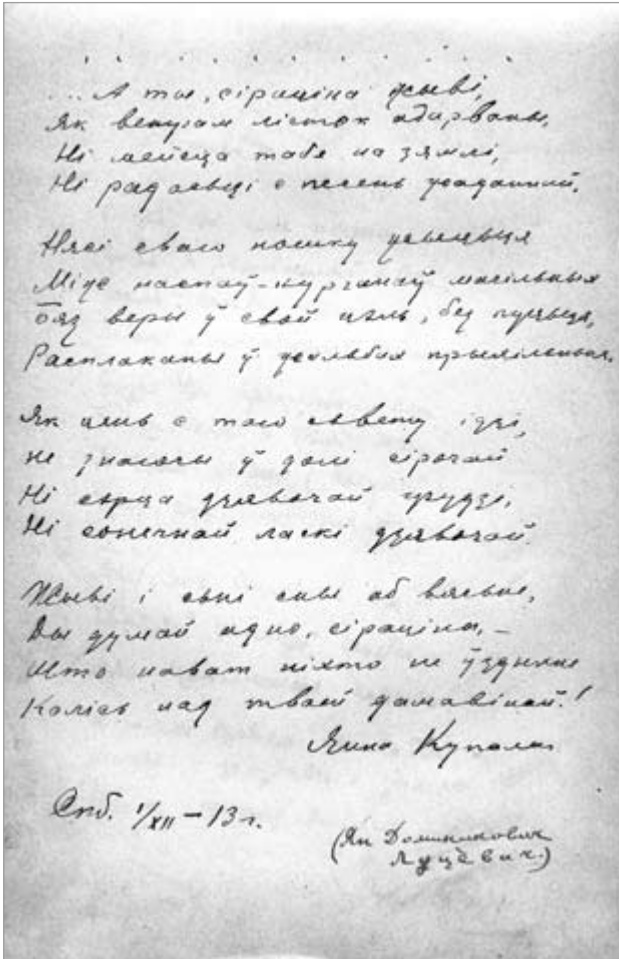 . . . . . . . . . . .
... А ты, сіраціна жыві,
Як ветрам лісток адарваны,
Ні мейсца табе на зямлі,
Ні радасьці с песень
Нясі сваю ношку
Між наспаў-курганаў магільных
Бяз веры ў свой цэль, без
Расплаканы ў
Як цень с таго сьвету ідзі,
Не знаючы ў долі сірочай
Ні сэрца дзявочай грудзі,
Ні сонечнай ласкі дзявочай.
Жыві і сьні сны аб вясьне,
Ды думай адно, сіраціна, –
Што нават ніхто не ўздыхне
Калісь над тваей дамавінай!
Янка Купала
Спб. 1/XII – 13 г.
(Ян Доминикович
Луцевич.)